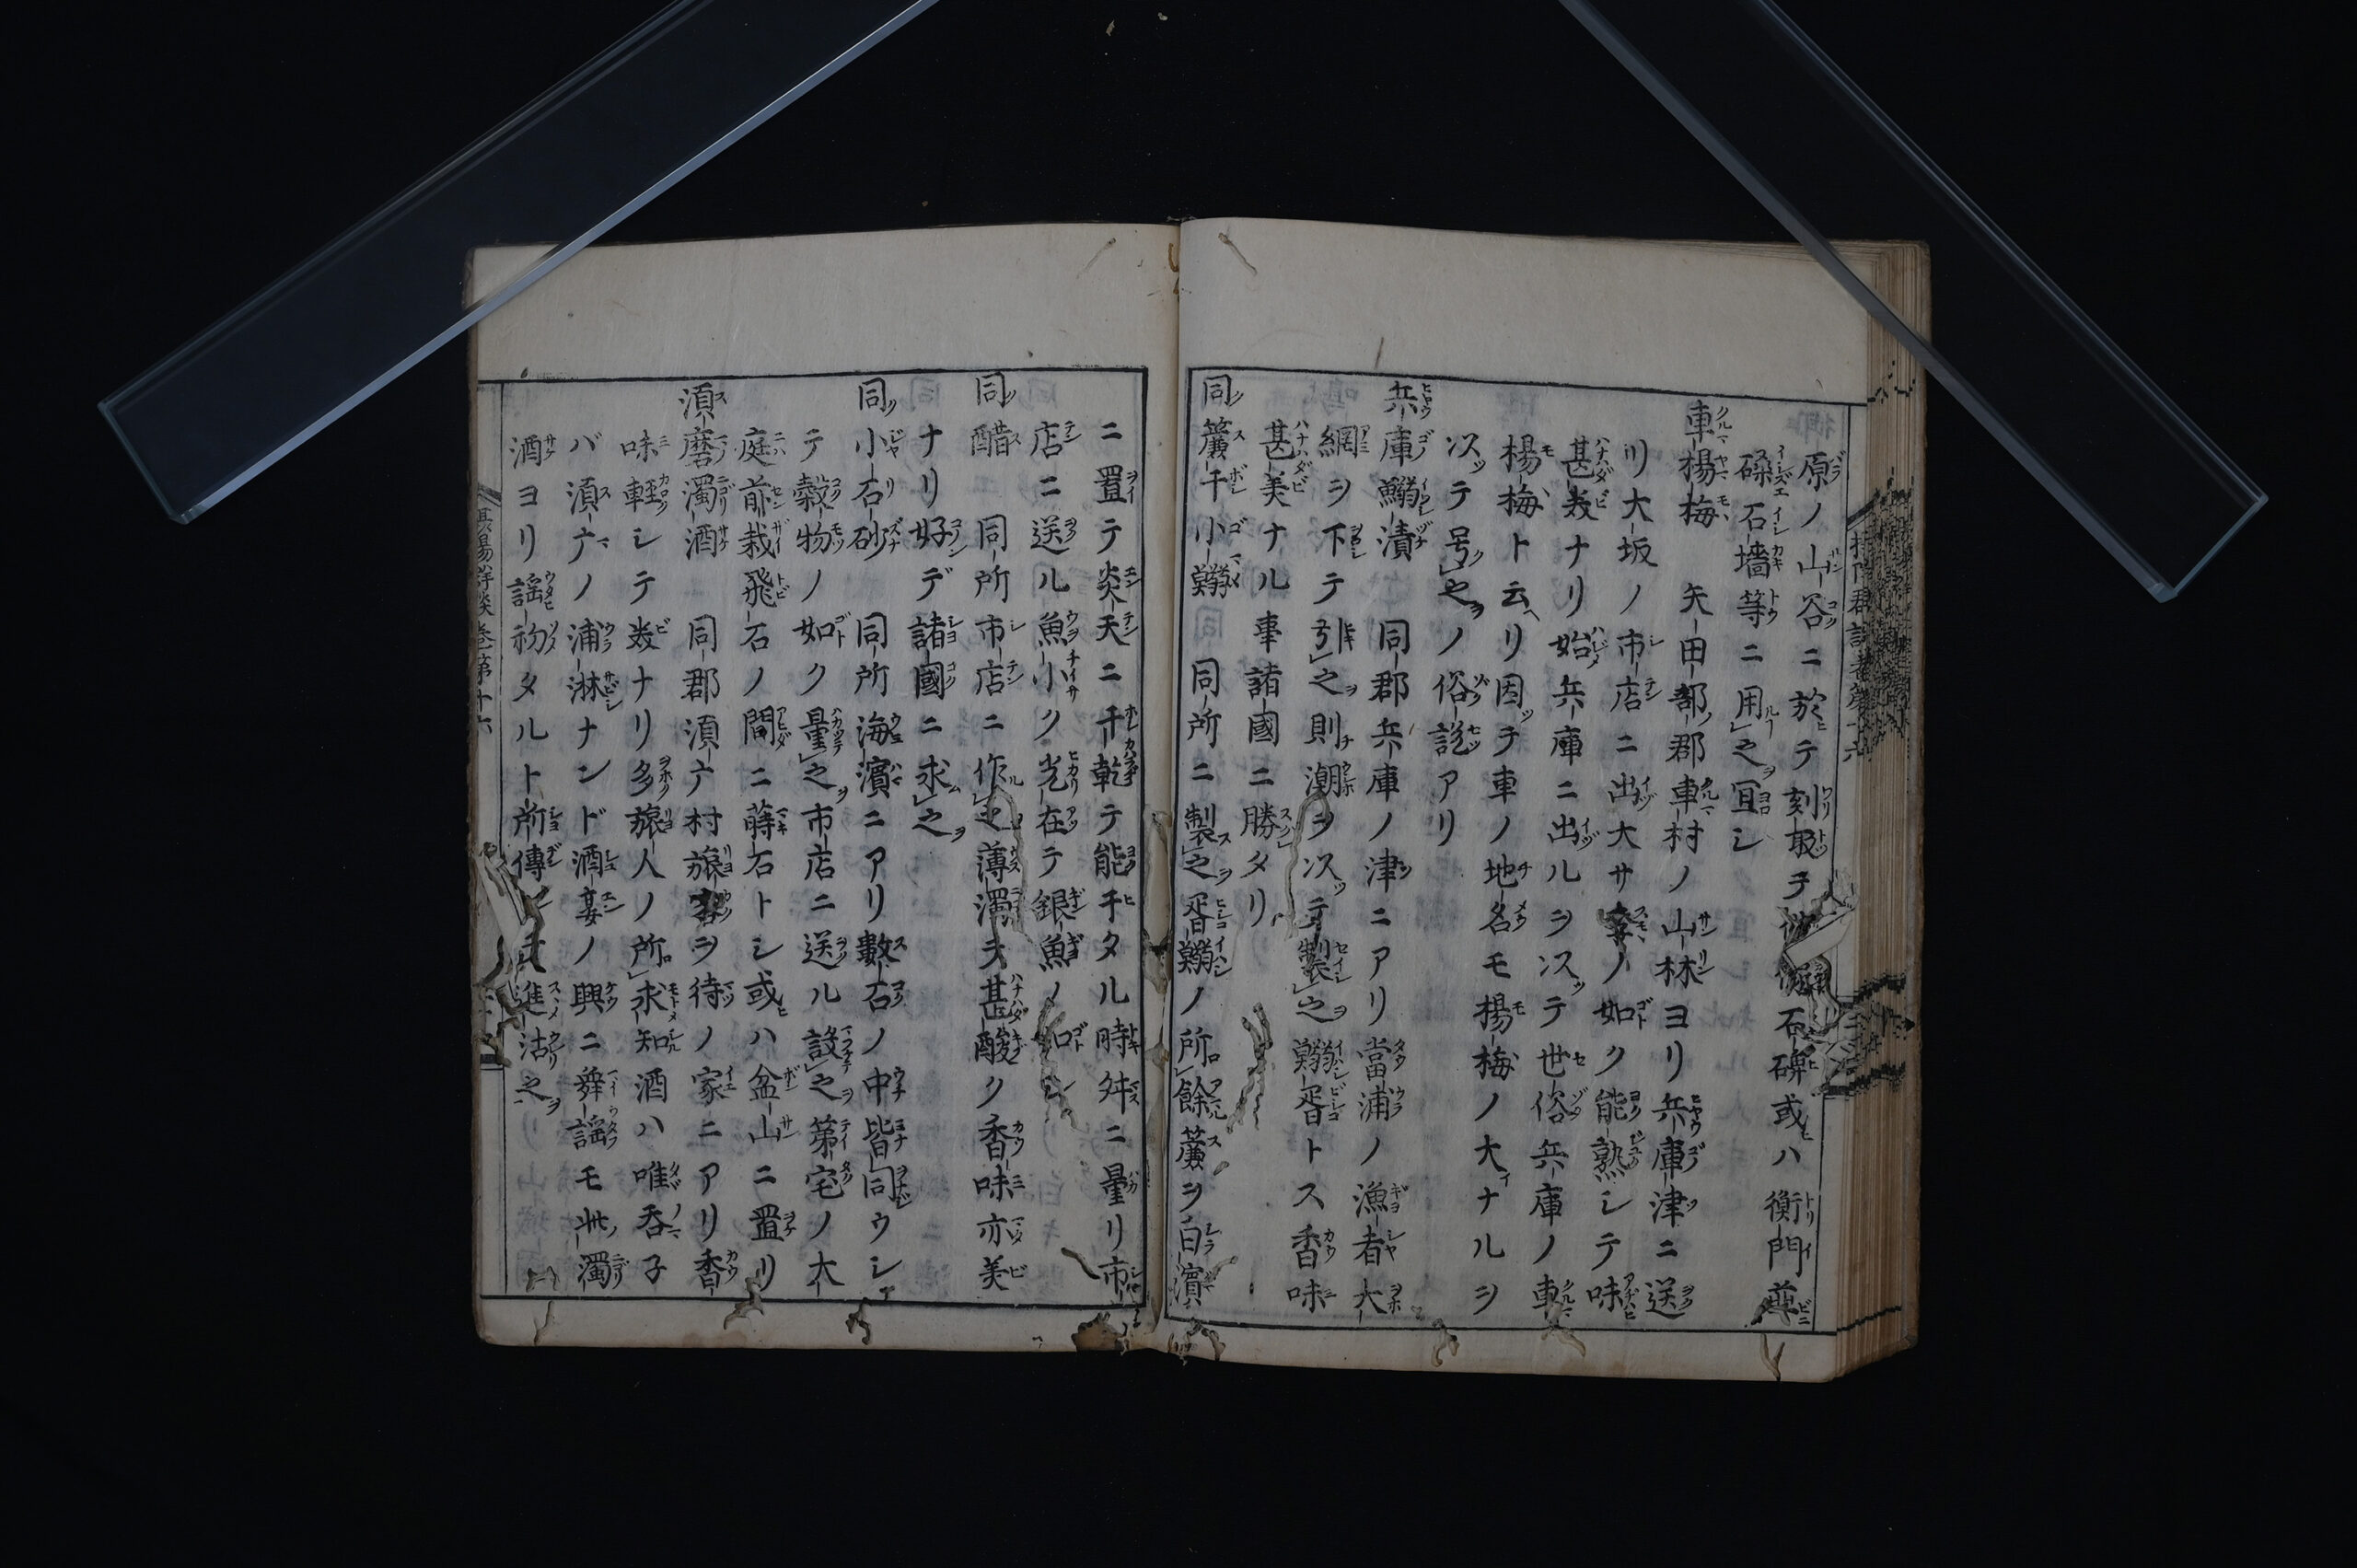 原ノ山谷ニ於テ刻取テ石碑或ハ衡門葬
礎石墻等ニ用之冝シ
車楊梅 矢田部郡車村ノ山林ヨリ兵庫津ニ送
リ大坂ノ市店ニ出大サ李ノ如ク能熟シテ味
甚美ナリ始兵庫ニ出ルヲ以テ世俗兵庫ノ車
楊梅ト云ヘリ因テ車ノ地名モ楊梅ノ大ナルヲ
以テ号之ノ俗説アリ
兵庫鰯漬 同郡兵庫ノ津ニアリ當浦ノ漁者大
網ヲ下テ引之則潮ヲ以テ製之鰯醤トス香味
甚美ナル事諸國ニ勝タリ
同簾干小鰯 同所ニ製之醤鰯ノ所餘簾ヲ白濱
ニ置テ炎天ニ干乾テ能干タル時舛ニ量リ市
店ニ送ル魚小ク光在テ銀魚ノ如シ
同醋 同所市店ニ作之薄濁テ甚酸ク香味亦美
ナリ好デ諸國ニ求之
同小石砂 同所海濱ニアリ數石ノ中皆同ウシ
テ穀物ノ如ク量之市店ニ送ル設之第宅ノ大
庭前栽飛石ノ間ニ蒔石トシ或ハ盆山ニ置リ
湏磨濁酒 同郡湏广村旅客ヲ待ノ家ニアリ香
味輕シテ美ナリ多旅人ノ所求知酒ハ唯呑子
バ湏广ノ浦淋ナンド酒宴ノ興ニ舞謡モ此濁
酒ヨリ謡初タルト所傳シテ進沽之